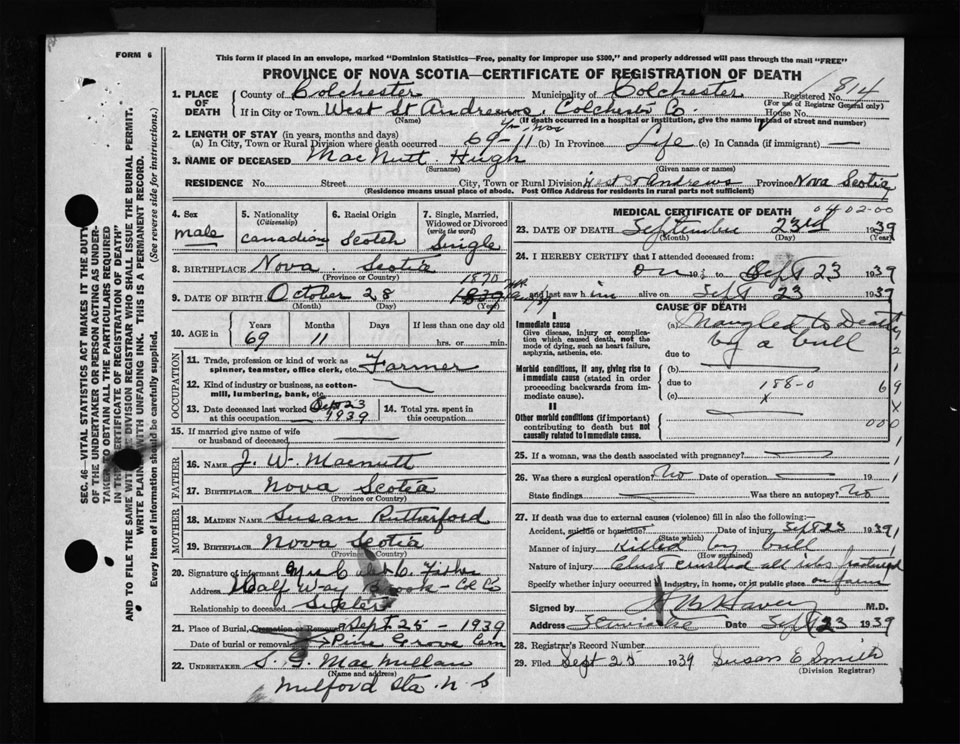 FORM 6
This form if placed in an envelope, marked "Dominion Statistics—Free, penalty for improper use $300," and properly addressed will pass through the mail "FREE"
PROVINCE OF NOVA SCOTIA—CERTIFICATE OF REGISTRATION OF DEATH
SEC. 46—VITAL STATISTICS ACT MAKES IT THE DUTY
OF THE UNDERTAKER OR PERSON ACTING AS UNDER-
TAKER TO OBTAIN ALL THE PARTICULARS REQUIRED
IN THE "CERTIFICATE OF REGISTRATION OF DEATH"
AND TO FILE THE SAME WITH THE DIVISION REGISTRAR WHO SHALL ISSUE THE BURIAL PERMIT.
WRITE PLAINLY WITH UNFADING INK. THIS IS A PERMANENT RECORD.
Every item of information should be carefully supplied. (See reverse side for instructions.)
1. PLACE OF DEATH County of Colchester Municipality of Colchester Registered No. 814
(For use of Registrar General only)
If in City or Town West St Andrews, Colchester Co House No.
(Name) (If death occurred in a hospital or institution, give the name instead of street and number)
2. LENGTH OF STAY (in years, months and days)
(a) In City, Town or Rural Division where death occurred 69-11 (b) In Province Life (c) In Canada (if immigrant) —
3. NAME OF DECEASED MacNutt Hugh
(Surname) (Given name or names)
RESIDENCE No. Street City, Town or Rural Division West St Andrews Province Nova Scotia
(Residence means usual place of abode. Post Office Address for residents in rural parts not sufficient)
4. Sex
male
5. Nationality
(Citizenship)
Canadian
6. Racial Origin
Scotch
7. Single, Married, Widowed or Divorced
(write the word)
Single
8. BIRTHPLACE Nova Scotia
(Province or Country)
1870
9. DATE OF BIRTH October 28 1839
(Month) (Day) (Year)
10. AGE in
Years Months Days If less than one day old
69 11 hrs. or min.
OCCUPATION
11. Trade, profession or kind of work as
spinner, teamster, office clerk, etc. Farmer
12. Kind of industry or business, as cotton-
mill, lumbering, bank, etc.
13. Date deceased last worked at this occupation Sept 23 1939
14. Total yrs. spent in this occupation
15. If married give name of wife
or husband of deceased
FATHER
16. NAME J. W. Macnutt
17. BIRTHPLACE Nova Scotia
(Province or Country)
MOTHER
18. MAIDEN NAME Susan Rutherford
19. BIRTHPLACE Nova Scotia
(Province or Country)
20. Signature of informant
Address Half Way Brook Col Co
Relationship to deceased Sister
21. Place of Burial, Cremation or Removal Sept 25 - 1939
Date of burial or removal Pine Grove Cem
22. UNDERTAKER S. G. MacMillan
(Name and address)
Milford Sta. N. S
MEDICAL CERTIFICATE OF DEATH
0402-00
23. DATE OF DEATH September 23rd 1939
(Month) (Day) (Year)
24. I HEREBY CERTIFY that I attended deceased from:
on Sept 23 1939
and last saw him alive on Sept 23 1939
CAUSE OF DEATH
I
Immediate cause
Give disease, injury or complica-
tion which caused death, not the
mode of dying, such as heart failure,
asphyxia, asthenia, etc.
(a) Mangled to Death
by a bull
due to
Morbid conditions, if any, giving rise to
immediate cause (stated in order
proceeding backwards from im-
mediate cause).
(b)
due to 188-0
(c) x
II
Other morbid conditions (if important)
contributing to death but not
causally related to immediate cause.
25. If a woman, was the death associated with pregnancy?
26. Was there a surgical operation? No Date of operation 19
State findings Was there an autopsy? No
27. If death was due to external causes (violence) fill in also the following:—
Accident, suicide or homicide? Date of injury Sept 23 1939
(State which)
Manner of injury Killed by bull
(How sustained)
Nature of injury Chest crushed all ribs fractured
Specify whether injury occurred in industry, in home, or in public place on farm
Signed by M.D.
Address Stewiacke Date Sept 23 1939
28. Registrar's Record Number
29. Filed Sept 25 1939 Susan E Smith
(Division Registrar)